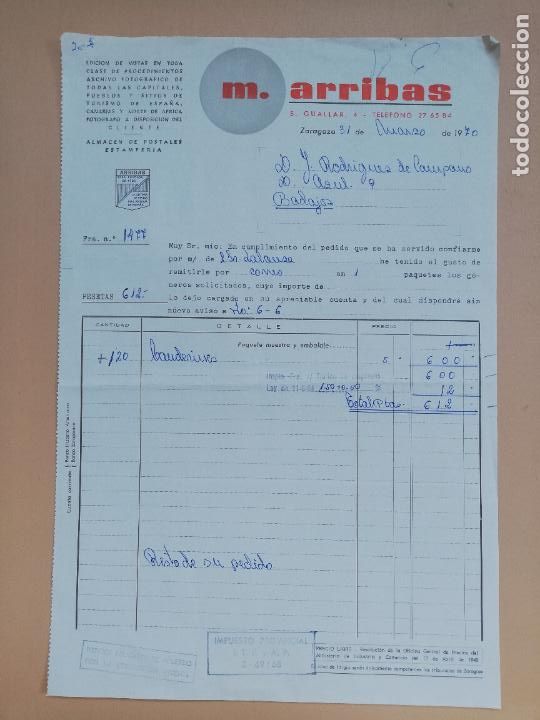 EDICION DE VISTAS EN TODA
CLASE DE PROCEDIMIENTOS
ARCHIVO FOTOGRAFICO DE
TODAS LAS CAPITALES,
PUEBLOS Y SITIOS DE
TURISMO DE ESPAÑA,
CANARIAS Y NORTE DE AFRICA
FOTOGRAFO A DISPOSICION DEL
CLIENTE
ALMACEN DE POSTALES
ESTAMPERIA
ARRIBAS
m. arribas
S. GUALLAR, 4 - TELEFONO 27 65 84
Zaragoza 31 de Marzo de 1970
D. J. Rodrigues de Campano
Badajoz
Fra. n.º 1477
Muy Sr. mío: En cumplimiento del pedido que se ha servido confiarme
por m/ de he tenido el gusto de
remitirle por correo en 1 paquetes los gé-
neros solicitados, cuyo importe de
PESETAS 612.- lo dejo cargado en su apreciable cuenta y del cual dispondré sin
nuevo aviso a 6-6
CANTIDAD DETALLE PRECIO
Paquete muestra y embalaje
+120 banderines 5 600
600
12
Total Ptas. 612
Resto de su pedido
IMPUESTO PROVINCIAL
todocoleccion.net